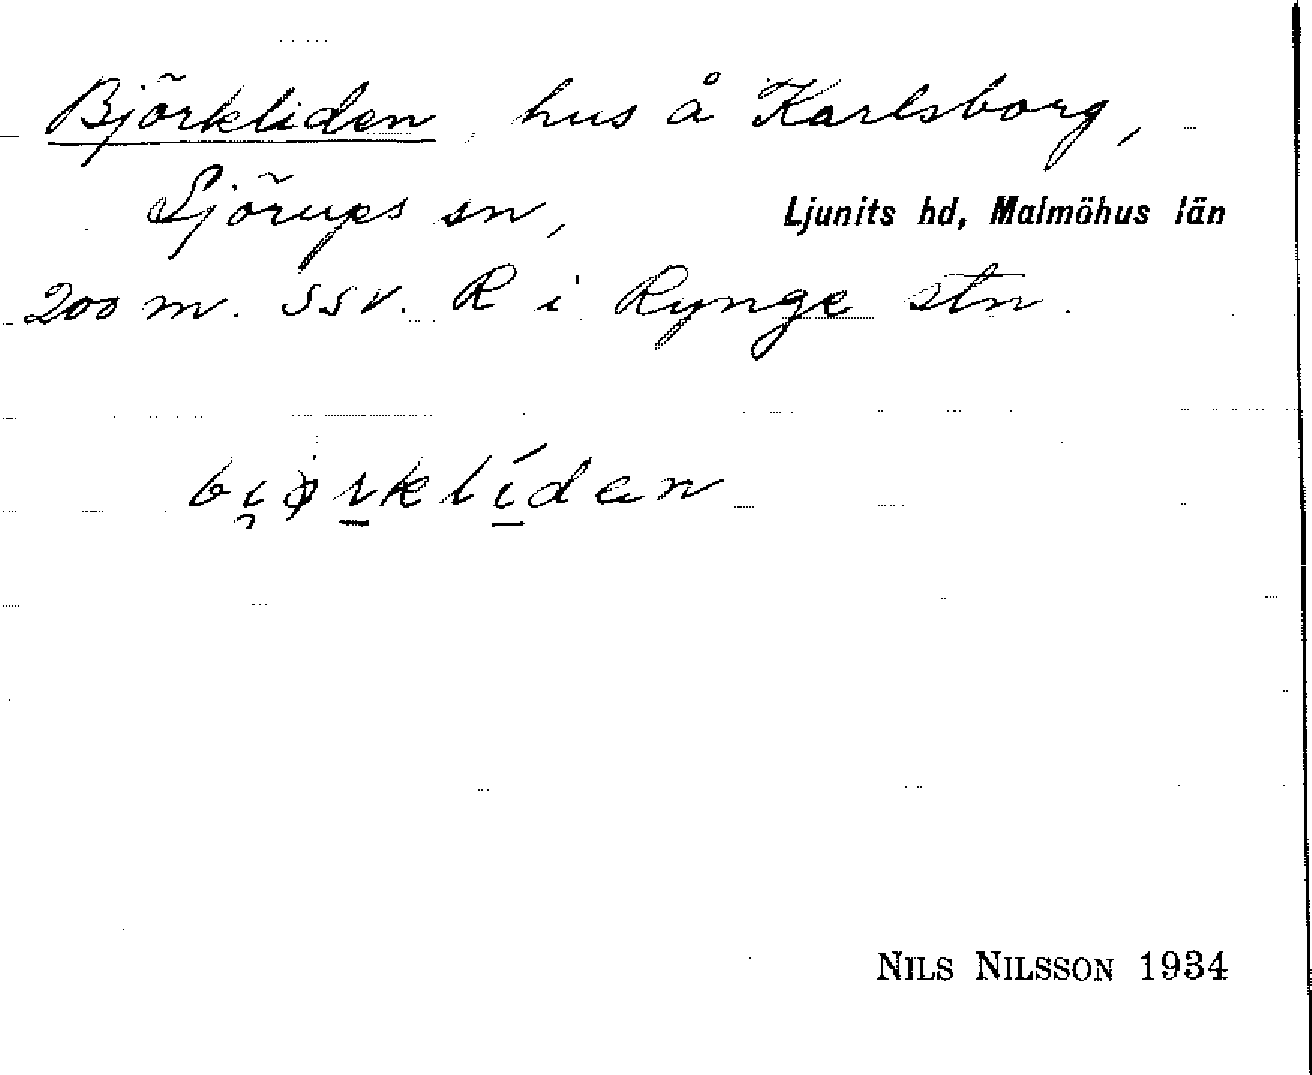 Björkliden, hus å Karlsborg,
Sjörups sn, Ljunits hd, Malmöhus län
200 m. SSV. R i Rynge stn.
bi̯ørklíden
NILS NILSSON 1934